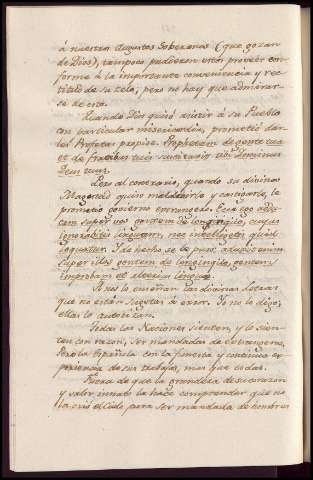 á nuestros Augustos Soberanos (que gozan
de Dios), tampoco pudieron estos proveer con
forme á la importante conveniencia y rec
titud de su zelo; pero no hay que admirar
se de esto.
Quando Dios quiso asistir á su Pueblo
con particular misericordia, prometió dar
les Profetas propios. Prophetam de gente tua
et de fratribus tuis suscitabit tibi Dominus
Deus tuus.
Pero al contrario, quando su divina
Magestad quiso maldecirlo y castigarle, le
prometió govierno extrangero. Ecce ego addu
cam super vos gentem de longinquo, cujus
ignorabitis linguam, nec intelligetis quid
loquatur. Y de hecho se lo puso: adduxit enim
super illos gentem de longinquo, gentem
improbam et alterius linguæ.
Si no lo enseñan las divinas letras
que no están sugetas á error. Yo no lo digo,
ellas lo autorizan.
Todas las Naciones sienten, y lo sien
ten con razon, ser mandadas de extrangeros,
pero la Española con la funesta y continua ex
periencia de sus trabajos, mas que todas.
Fuera de que la grandeza de su corazon
y valor innato la hace comprender que no
la crió el Cielo para ser mandada de hombres